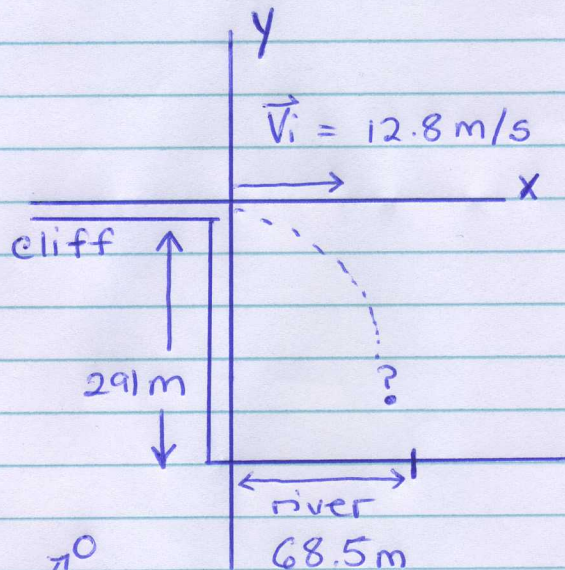 y
Vi = 12.8 m/s
x
cliff
291m
?
river
68.5m
0